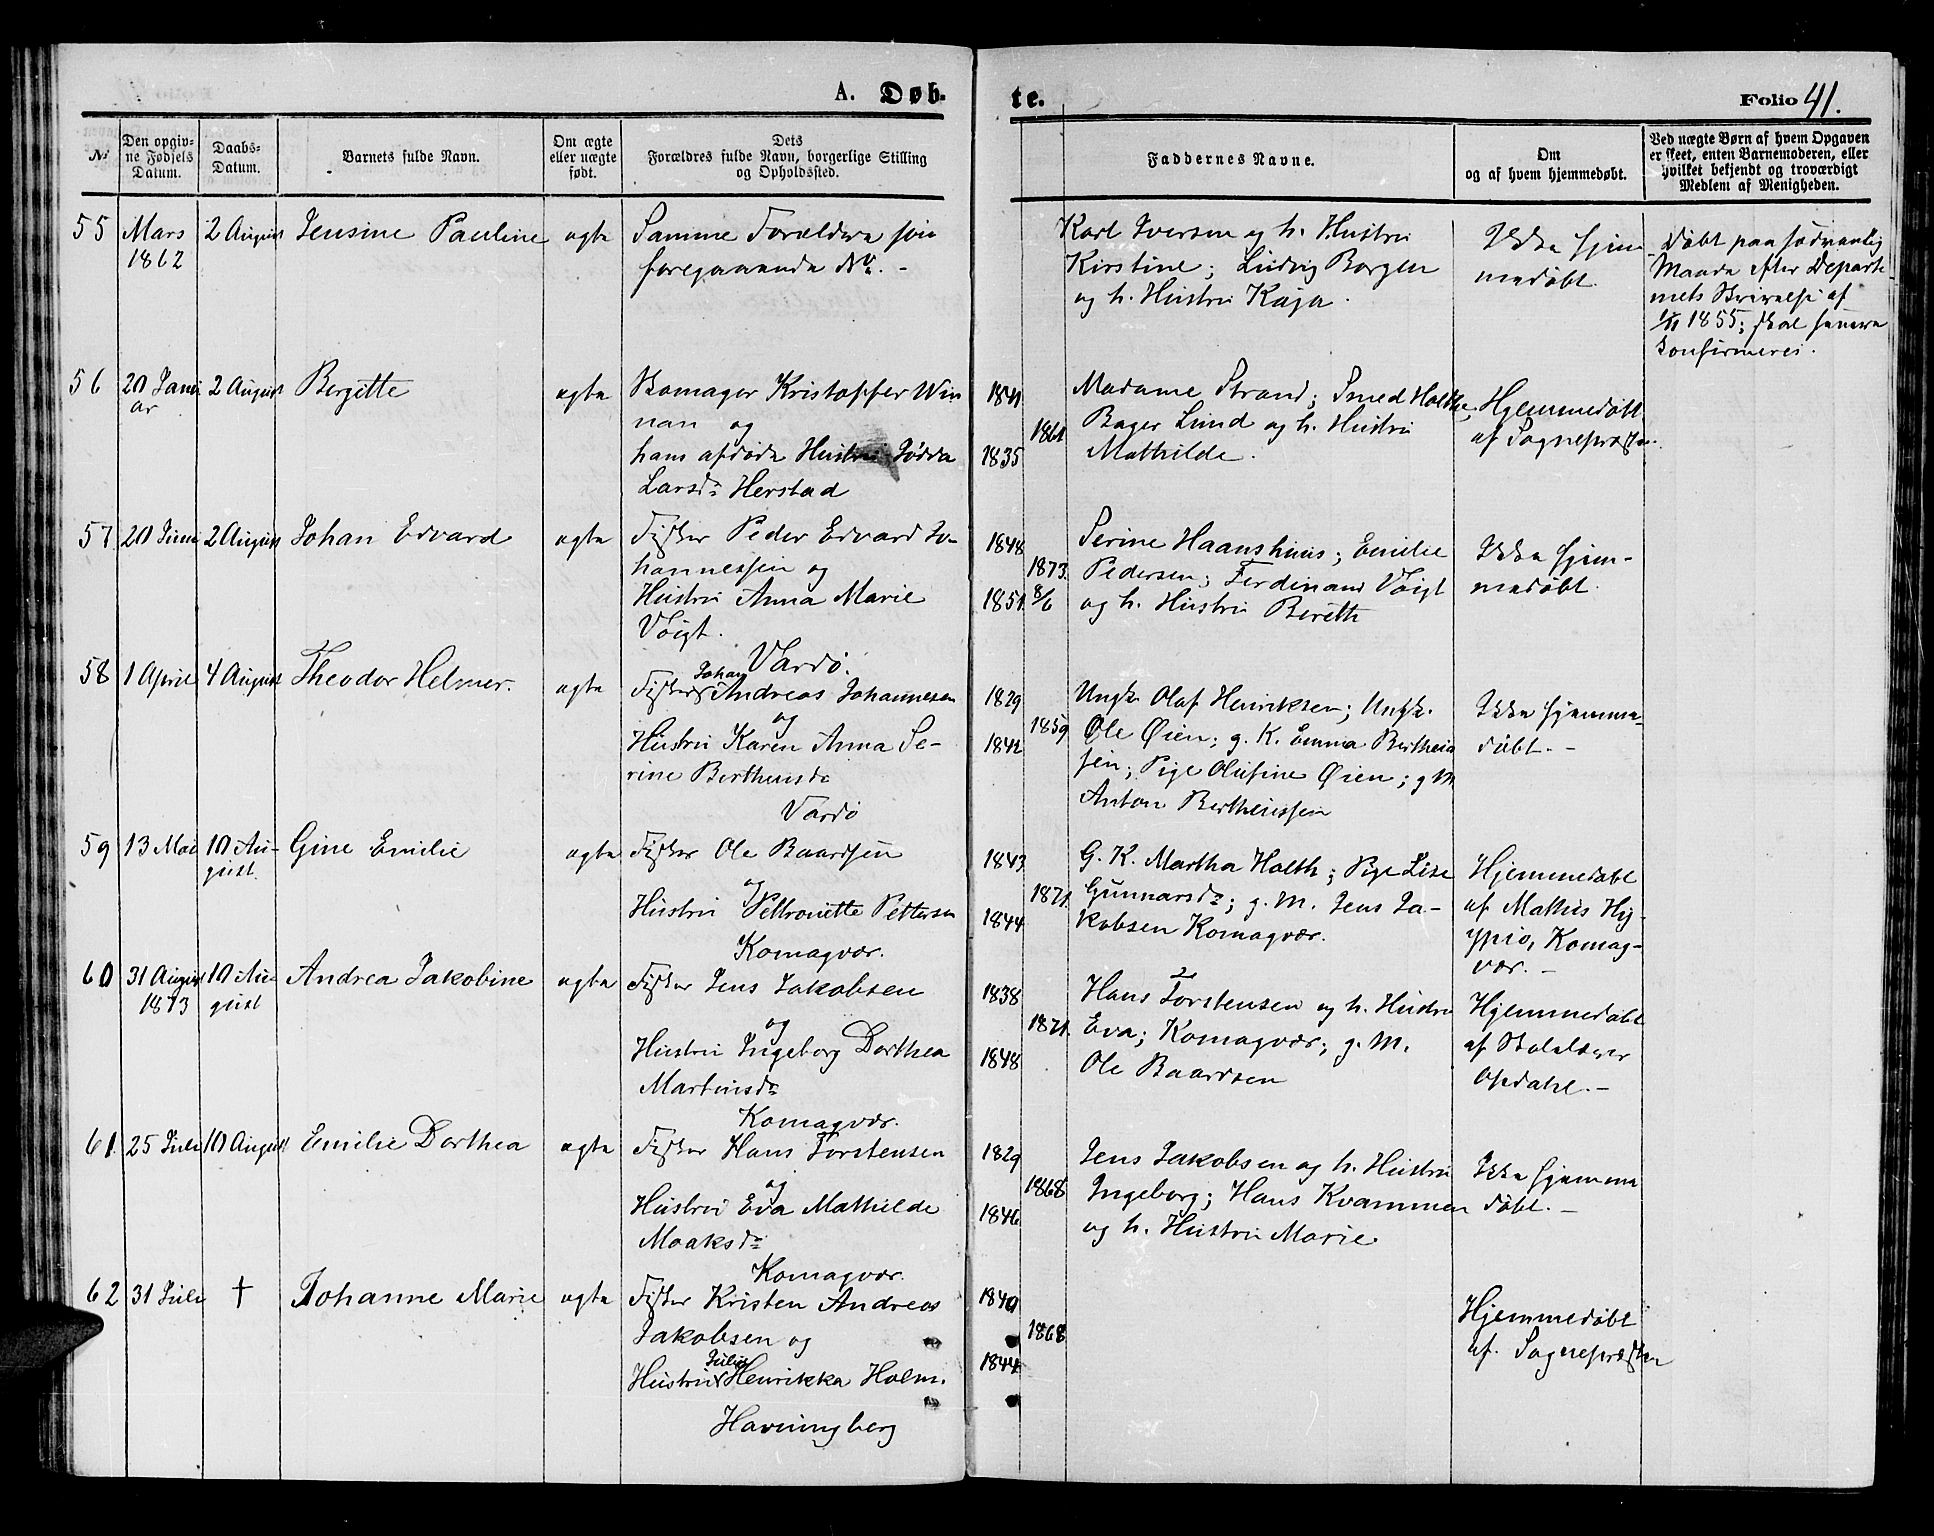 A. Døb-
te.
Folio 41.
No
Den opgiv-
ne Fødsels
Datum.
Daabs-
Datum.
Barnets fulde Navn.
Om ægte
eller uægte
født.
Dets
Forældres fulde Navn, borgerlige Stilling
og Opholdssted.
Faddernes Navne.
Om
og af hvem hjemmedøbt.
Ved uægte Børn af hvem Opgaven
er skeet, enten Barnemoderen, eller
hvilket bekjendt og troværdigt
Medlem af Menigheden.
55
Mars
1862
2 August
Jensine Pauline
ægte
Samme Forældre som
foregaaende No. -
Karl Iversen og h. Hustru
Kirstine; Ludvig Borgen
og h. Hustru Kaja.
Ikke hjem
medøbt.
Døbt paa sædvanlig
Maade efter Departe-
mets Skrivelse af
1855; skal senere
konfirmeres.
56
20 Janu
ar
2 August
Bergitte
ægte
Skomager Kristoffer Win
nan og
hans afdøde Hustru Jødva
Larsdr Herstad
1841
1835
1861
Madame Strand; Smed Holthe,
Bager Lund og h. Hustru
Mathilde.
Hjemmedøbt
af Sognepræsten.
57
20 Juni
2 August
Johan Edvard
ægte
Fisker Peder Edvard Jo-
hannessen og
Hustru Anna Marie
Voigt.
Vardø.
1848
1851
1873
8/6
Serine Haanshuus; Emilie
Pedersen; Ferdinand Voigt
og h. Hustru Bereth
Ikke hjem-
medøbt.
58
1 April
4 August
Theodor Helmer.
ægte
Johan
Fisker Andreas Johannesen
og
Hustru Karen Anna Se-
rine Bertheusdr
Vardø
1829
1842
1859
Ungk. Olaf Henriksen; Ungk.
Ole Øien; g. K. Emma Bertheus
sen; Pige Olufine Øien; g M
Anton Bertheussen
Ikke hjemme-
døbt. -
59
13 Mai
10 Au-
gust.
Gine Emilie
ægte
Fisker Ole Baardsen
og
Hustru Petronette Pettersen
Komagvær.
1843
1844
1871.
G. K. Martha Holth; Pige Lise
Gunnarsdr; g. M. Jens Ja-
kobsen Komagvær.
Hjemmedøbt
af Mathis Hy-
ypiö, Komag-
vær. -
60
31 August
1873
10 Au-
gust
Andrea Jakobine
ægte
Fisker Jens Jakobsen
og
Hustru Ingeborg Dorthea
Martinsdr
Komagvær.
1838
1848
1871.
Hans Torstensen og h. Hustru
Eva; Komagvær; g. M.
Ole Baardsen
Hjemmedøbt
af Skolelærer
Opdahl. -
61.
25 Juli
10 August
Emilie Dorthea
ægte
Fisker Hans Torstensen
og
Hustru Eva Mathilde
Moaksdr
Komagvær.
1829
1846
1868
Jens Jakobsen og h. Hustru
Ingeborg; Hans Kvammen
og h. Hustru Marie.
Ikke hjemme
døbt. -
62
31 Juli
†
Johanne Marie
ægte
Fisker Kristen Andreas
Jakobsen og
Julie
Hustru Henrikka Holm.
Havningberg
1840
1844
1868
Hjemmedøbt
af. Sognepræsten